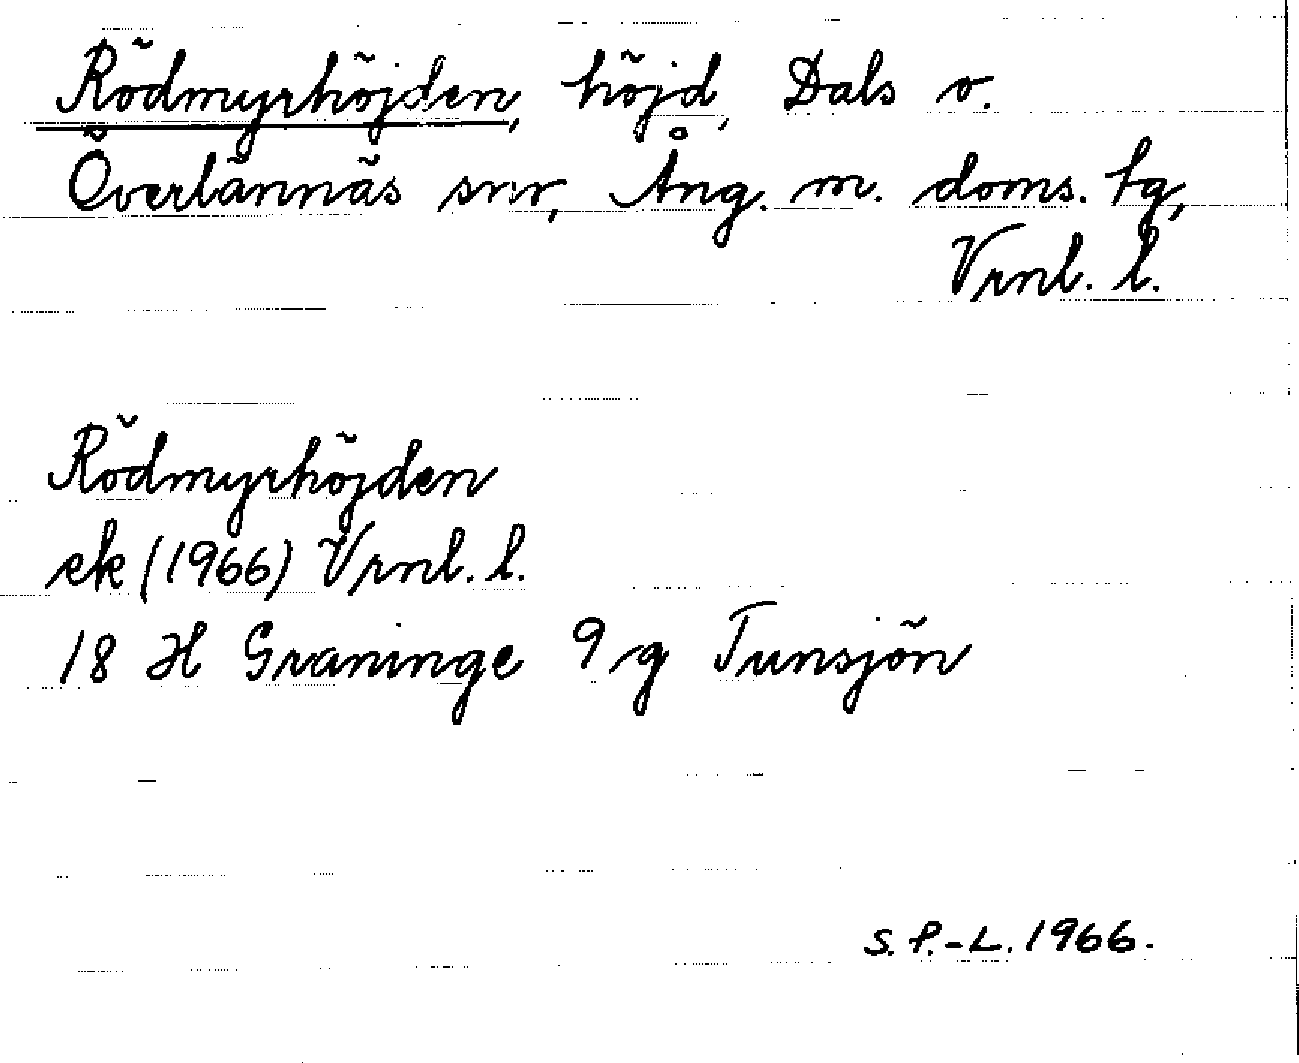 Rödmyrhöjden, höjd, Dals o.
Överlännäs snr, Ång. m. doms. tg,
Vrnl. l.
Rödmyrhöjden
ek (1966) Vrnl. l.
18 H Graninge 9 g Tunsjön
S. P.-L. 1966.